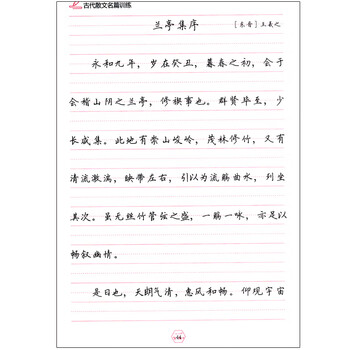 古代散文名篇训练
兰亭集序 [东晋]王羲之
永和九年，岁在癸丑，暮春之初，会于
会稽山阴之兰亭，修禊事也。群贤毕至，少
长咸集。此地有崇山峻岭，茂林修竹，又有
清流激湍，映带左右，引以为流觞曲水，列坐
其次。虽无丝竹管弦之盛，一觞一咏，亦足以
畅叙幽情。
是日也，天朗气清，惠风和畅。仰观宇宙